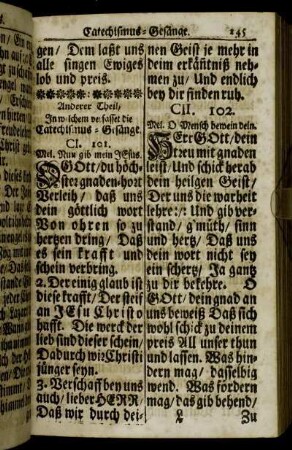 Catechismus-Gesänge.
145
gen/ Dem laßt uns
alle singen Ewiges
lob und preis.
Anderer Theil/
In welchem verfasset die
Catechismus-Gesänge.
CI. 101.
Mel. Nun gib mein JEsus.
O GOtt/ du höch-
ster gnaden-hort
Verleih/ daß uns
dein göttlich wort
Von ohren so zu
hertzen dring/ Daß
es sein krafft und
schein verbring.
2. Der einig glaub ist
diese krafft/ Der steif
an JEsu Christo
hafft. Die werck der
lieb sind dieser schein/
Dadurch wir Christi
jünger seyn.
3. Verschaff bey uns
auch/ lieber HERR/
Daß wir durch dei-
nen Geist je mehr in
deim erkäntniß neh-
men zu/ Und endlich
bey dir finden ruh.
CII. 102.
Mel. O Mensch bewein dein.
HErr GOtt/ dein
treu mit gnaden
leist/ Und schick herab
dein heilgen Geist/
Der uns die warheit
lehre:/: Und gib ver-
stand/ g'müth/ sinn
und hertz/ Daß uns
dein wort nicht sey
ein schertz/ Ja gantz
zu dir bekehre. O
GOtt/ dein gnad an
uns beweiß Daß sich
wohl schick zu deinem
preis All unser thun
und lassen. Was hin-
dern mag/ dasselbig
wend. Was fördern
mag/ das gib behend/
L
Zu